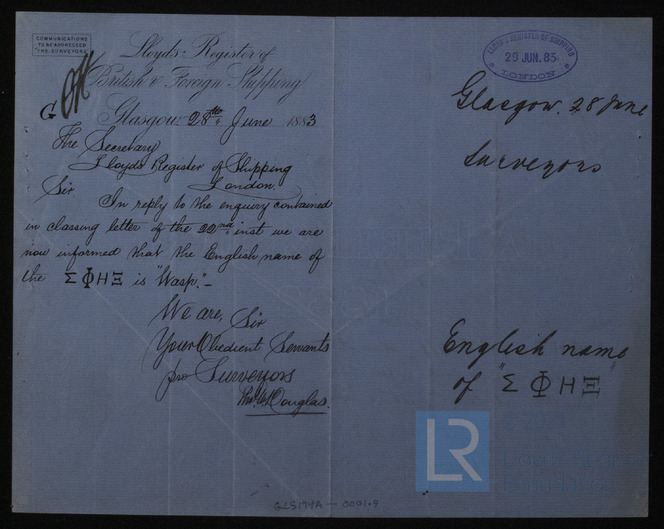 COMMUNICATIONS
TO BE ADDRESSED
"THE SURVEYORS"
Lloyd's Register of
British & Foreign Shipping
Glasgow 28th June 1883
The Secretary
Lloyds Register of Shipping
London.
Sir
In reply to the enquiry contained
in classing letter of the 22nd inst we are
now informed that the English name of
the ΣΦΗΞ is "Wasp". –
We are, Sir
Your Obedient Servants
pro Surveyors
Douglas.
LLOYD'S REGISTER OF SHIPPING
29 JUN. 83
LONDON
Glasgow. 28 June
Surveyors
English name
of "ΣΦΗΞ"
LR
GLS174A - 0001.9